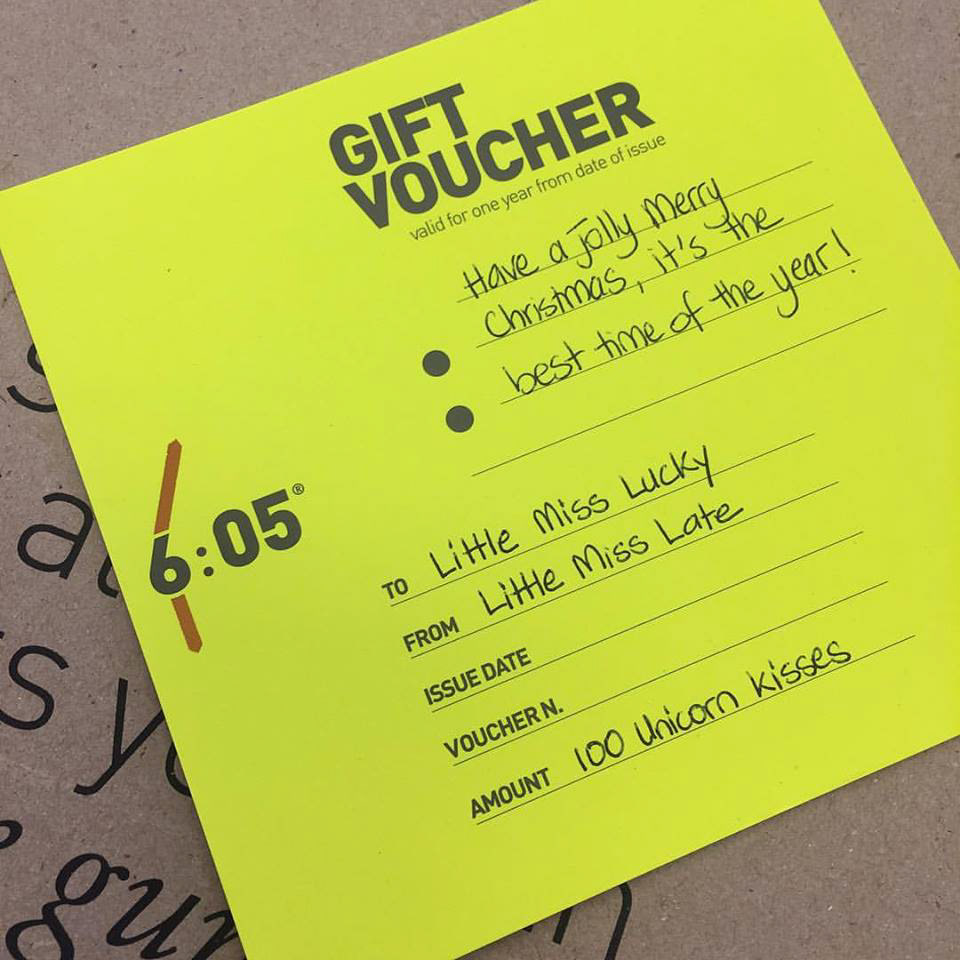 GIFT
VOUCHER
valid for one year from date of issue
Have a jolly Merry
Christmas, it's the
best time of the year!
6:05®
TO Little Miss Lucky
FROM Little Miss Late
ISSUE DATE
VOUCHER N.
AMOUNT 100 Unicorn kisses
s y
gu